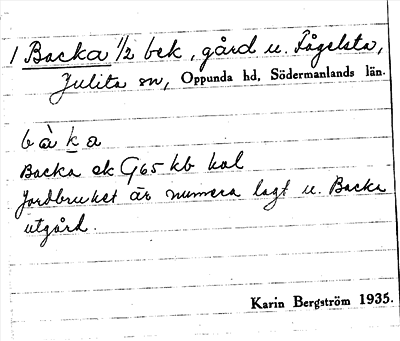 1 Backa 1/2 bek, gård u. Fågelsta,
Julita sn, Oppunda hd, Södermanlands län.
bàka
Backa ek G65 kb kal
Jordbruket är numera lagt u. Backa
utgård.
Karin Bergström 1935.